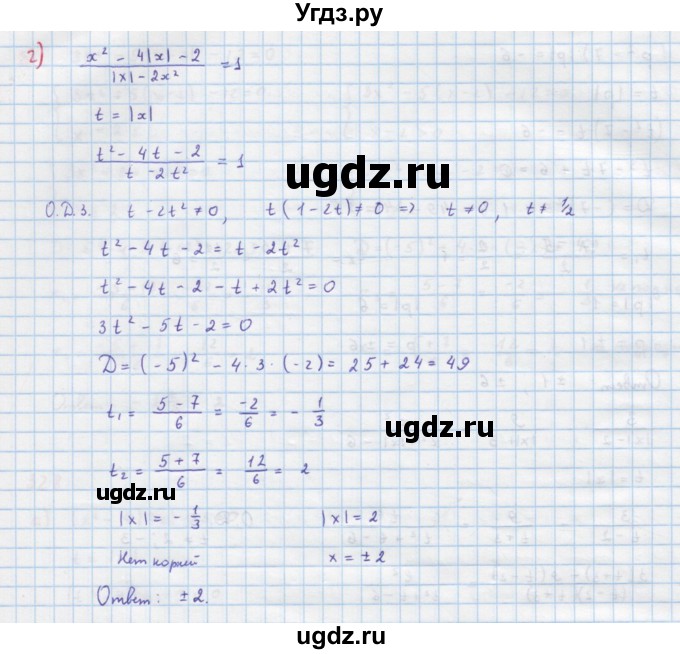 Угдз.ру
г) (x² - 4|x| - 2)/(|x| - 2x²) = 1
t = |x|
(t² - 4t - 2)/(t - 2t²) = 1
ugdz.ru
О.Д.З. t - 2t² ≠ 0, t(1 - 2t) ≠ 0 => t ≠ 0, t ≠ 1/2
t² - 4t - 2 = t - 2t²
t² - 4t - 2 - t + 2t² = 0
3t² - 5t - 2 = 0
D = (-5)² - 4·3·(-2) = 25 + 24 = 49
t₁ = (5 - 7)/6 = -2/6 = - 1/3
ugdz.ru
t₂ = (5 + 7)/6 = 12/6 = 2
ugdz.ru
|x| = - 1/3 |x| = 2
Нет корней x = ±2
Ответ: ±2.
ugdz.ru